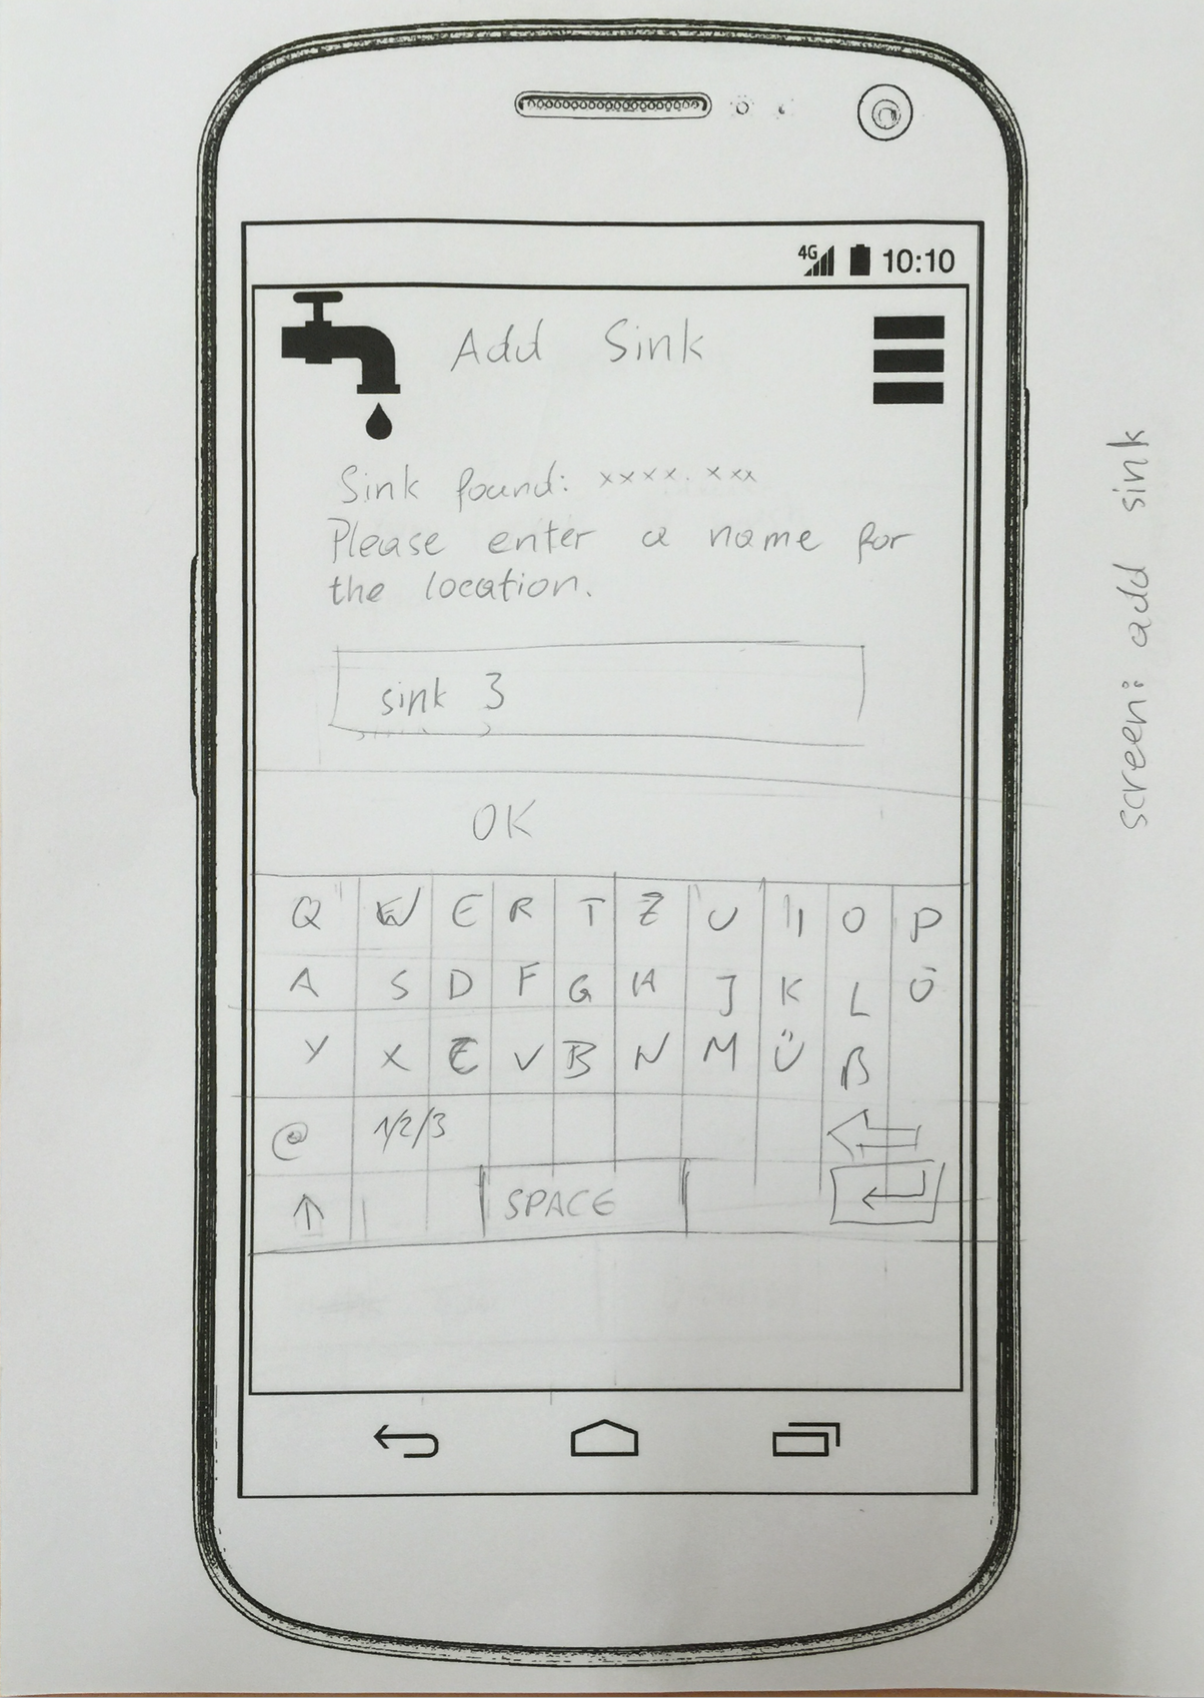 4G 10:10
Add Sink
Sink found: xxxx.xxx
Please enter a name for
the location.
sink 3
OK
Q W E R T Z U I O P
A S D F G H J K L Ö
Y X C V B N M Ü ß
@ 1/2/3
SPACE
screen: add sink